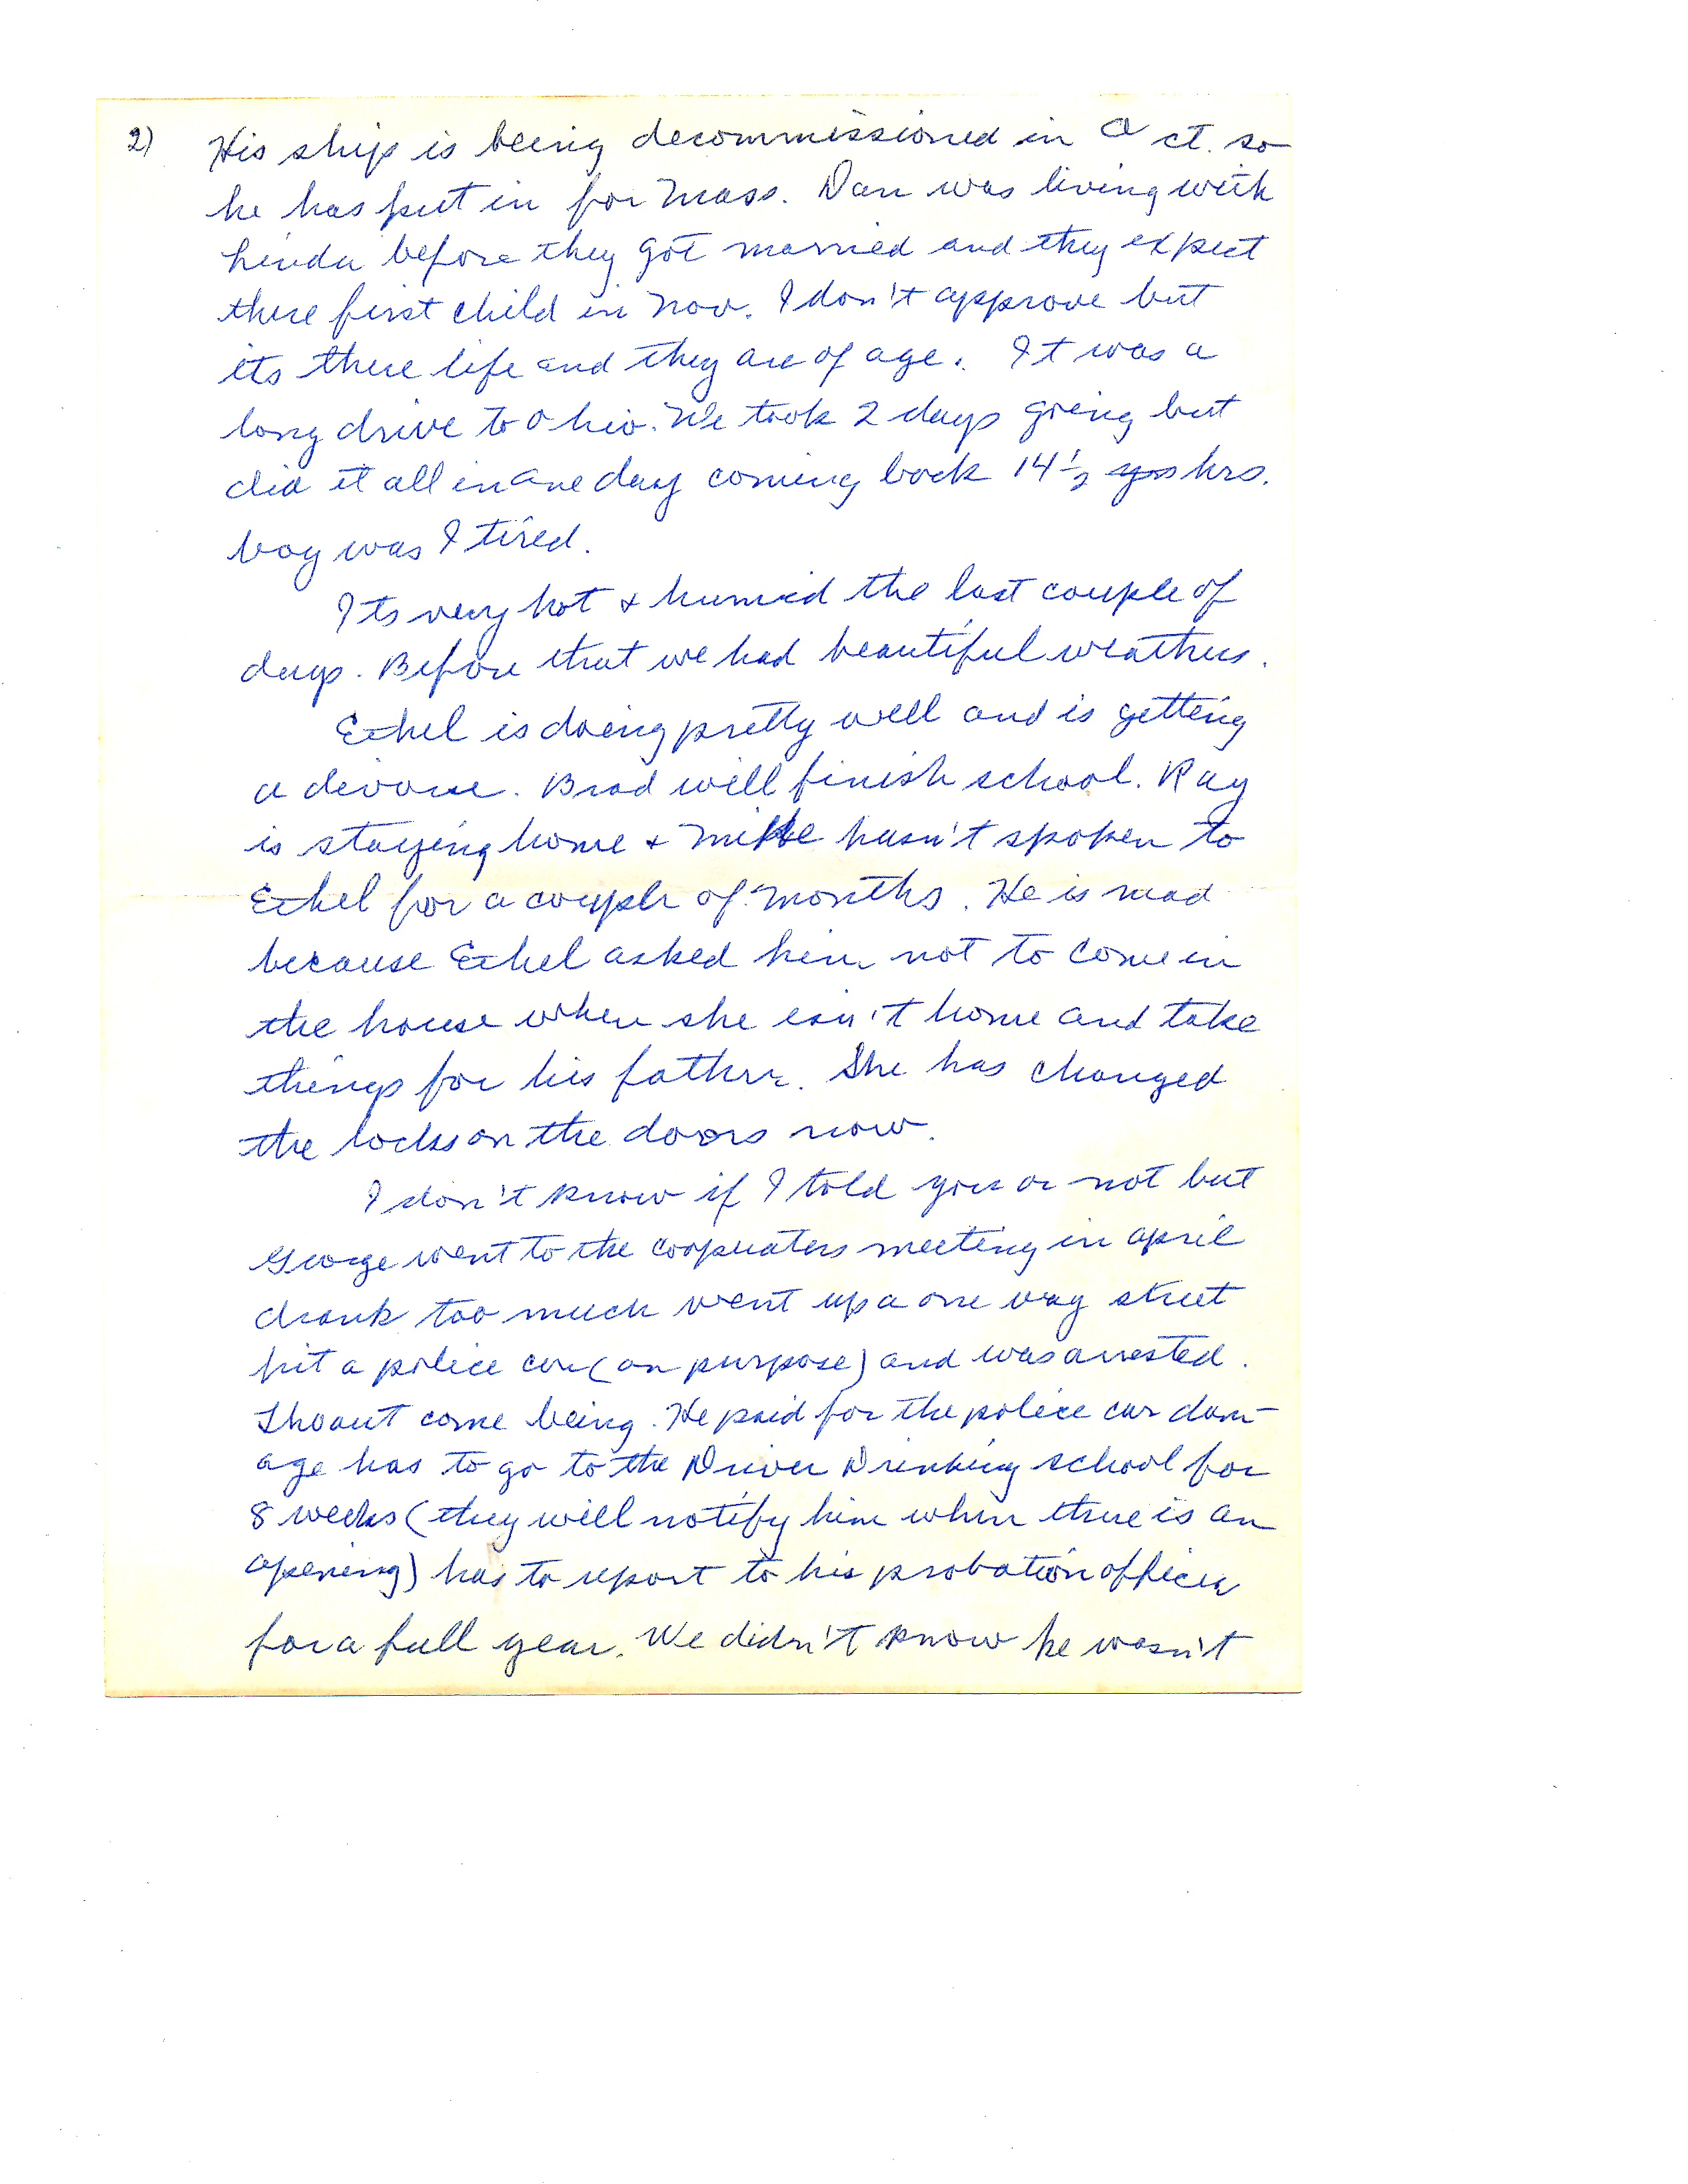 2) His ship is being decommissioned in Oct. so
he has put in for Mass. Dan was living with
Linda before they got married and they expect
there first child in Nov. I don't approve but
its there life and they are of age. It was a
long drive to Ohio. We took 2 days going but
did it all in one day coming back 14 1/2 hrs.
boy was I tired.
Its very hot & humid the last couple of
days. Before that we had beautiful weather.
Ethel is doing pretty well and is getting
a divorce. Brad will finish school. Ray
is staying home & Mike hasn't spoken to
Ethel for a couple of months. He is mad
because Ethel asked him not to come in
the house when she isn't home and take
things for his father. She has changed
the locks on the doors now.
I don't know if I told you or not but
George went to the cooperaters meeting in April
drank too much went up a one way street
hit a police car (on purpose) and was arrested.
The out come being. He paid for the police car dam-
age has to go to the Driver Drinking school for
8 weeks (they will notify him when there is an
opening) has to report to his probation officer
for a full year. We didn't know he wasn't